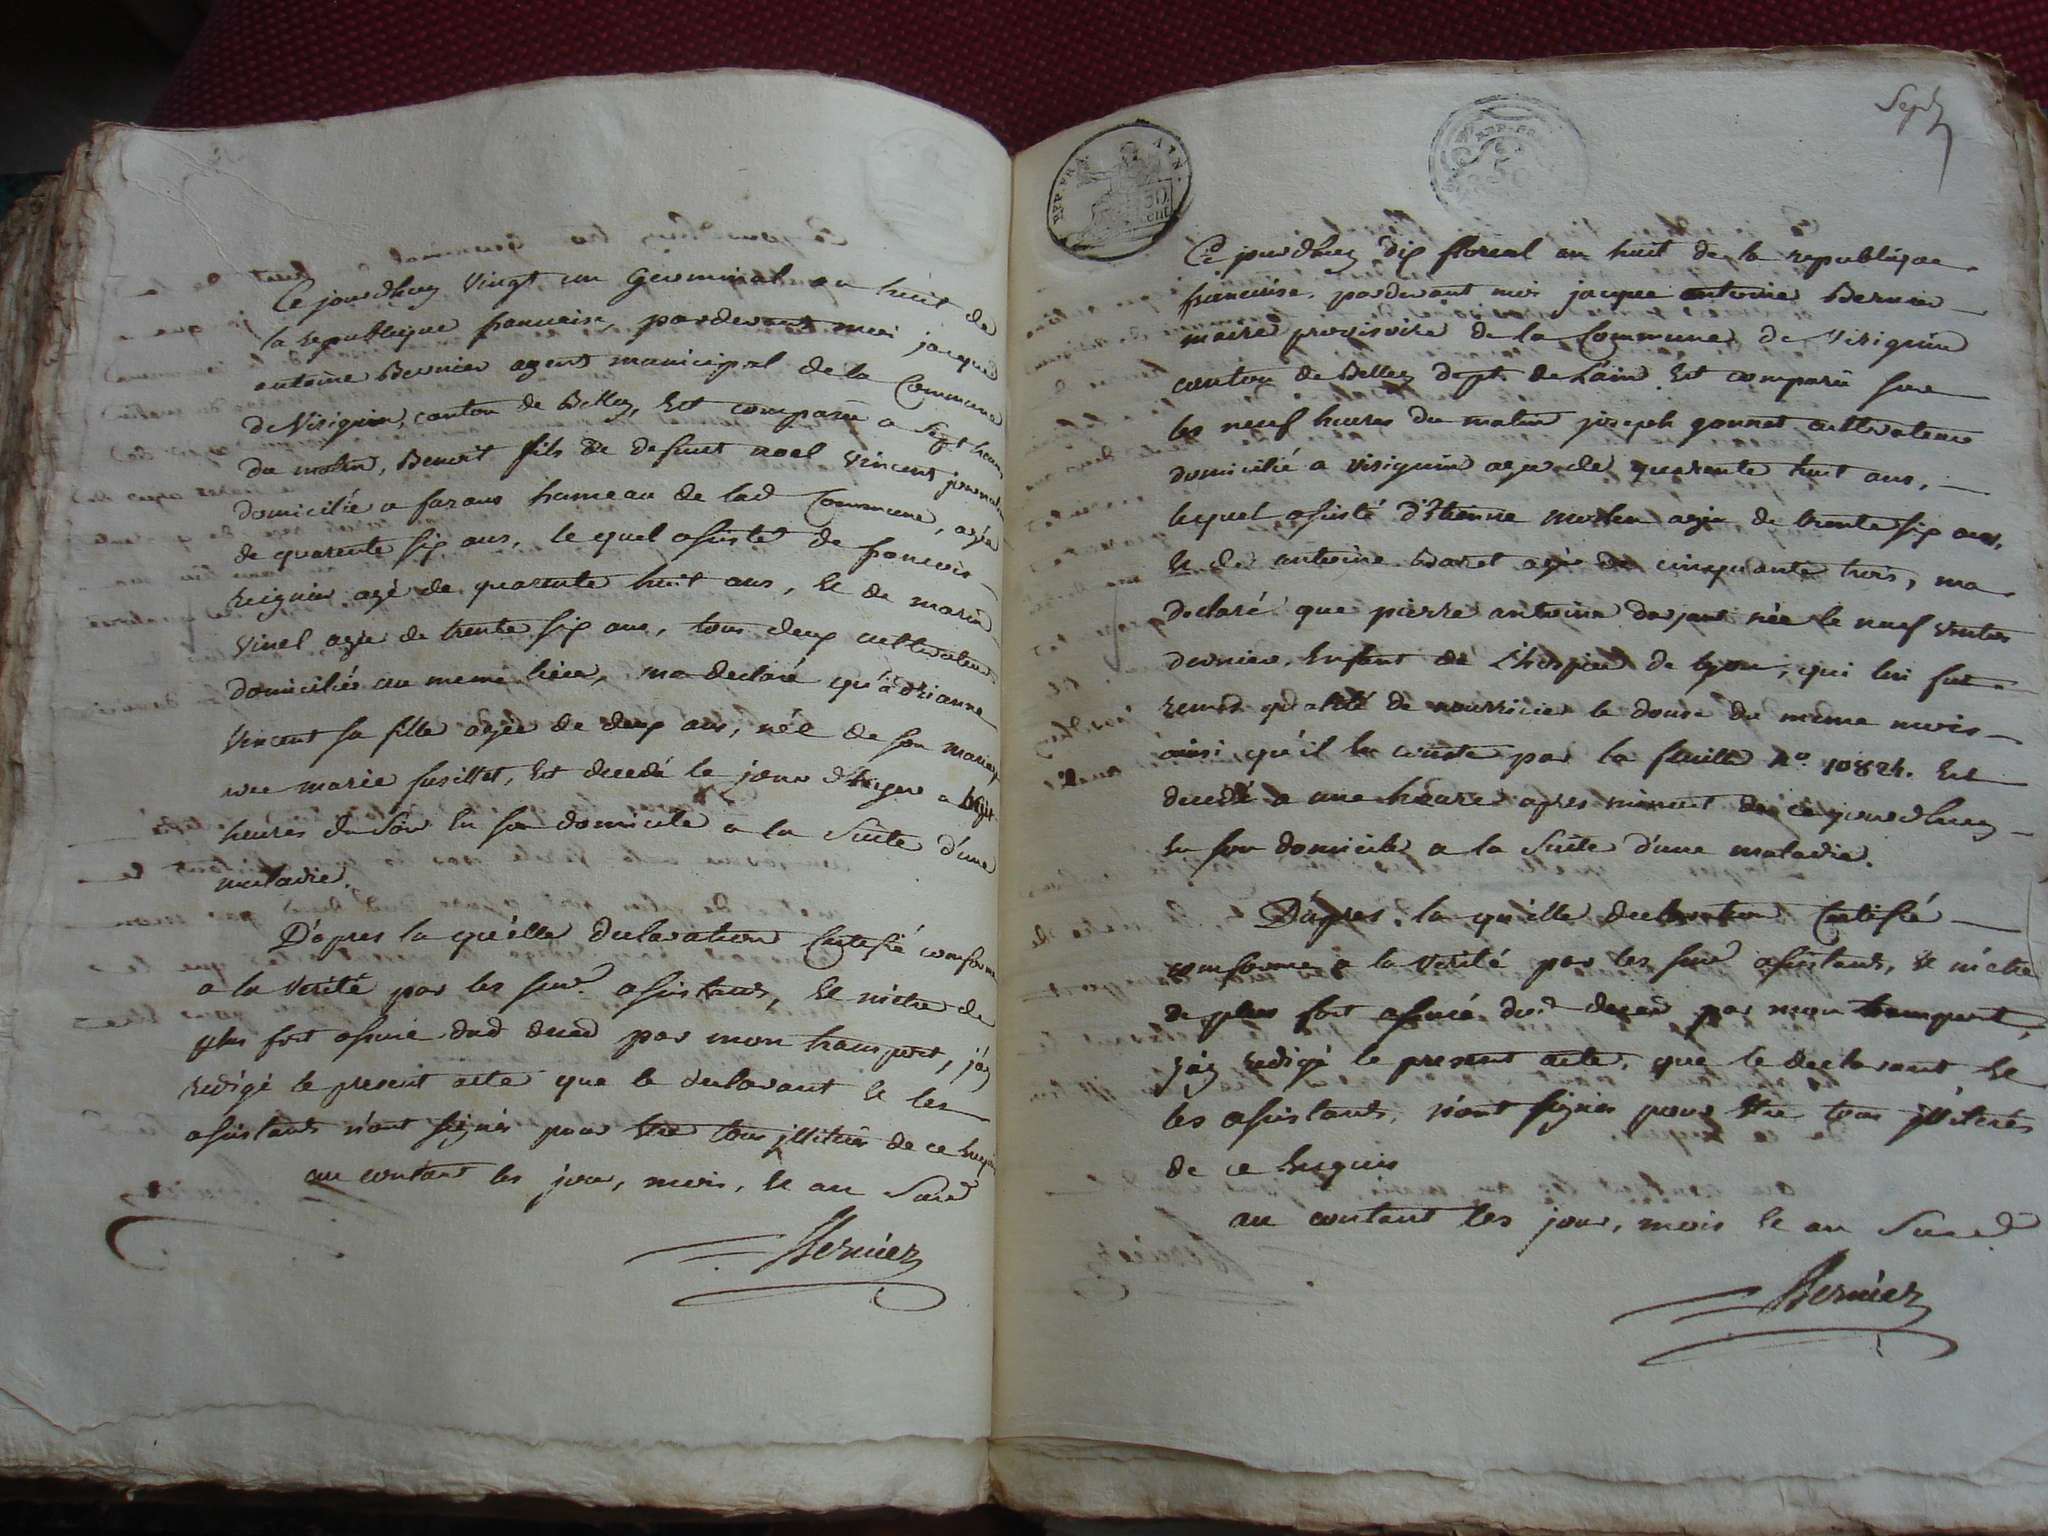 Ce jourdhuy vingt un Germinal an huit de
la republique francaise, pardevant moi jacque
antoine Bernier agent municipal de la Commune
de Virignin, canton de Belley, Est comparu a sept heures
du matin, Benoit fils de defunt noel vincent journalier
domicilié a farans hameau de lad Commune, agée
de quarente six ans, le quel assisté de francois
reignier agé de quarente huit ans, Et de marin
vinel agée de trente six ans, tous deux cultivateurs
domiciliés au meme lieu, ma declaré qu'adrianne
vincent sa fille agée de deux ans, née de son mariage
avec marie fusillet, Est decedé le jour d'hyer a
heures du Soir En son domicile a la Suite d'une
maladie.
D'apres la qu'elle declaration Certifié conforme
a la verité par les susd. assistants, Et m'etre de
plus fort assuré dud deced par mon transport, j'ay
redigé le present acte que le declarant Et les
assistants n'ont signés pour Etre tous illiterés de ce Enquis
au contant les jour, mois, Et an Susd
Bernier
Sept
REP. FRA
50
cent
REP. FR
50
Ce jourdhuy dix floreal an huit de la republique
francaise, pardevant moi jacque antoine Bernier
maire provisoire de la Commune de Virignin
canton de Belley dept. de Lain Est comparu sur
les neuf heures du matin joseph gonnet cultivateur
domicilié a virignin agée de quarente huit ans,
lequel assisté d'Etienne molen agée de trente six ans,
Et de antoine baret agée de cinquante trois, ma
declaré que pierre antoine née le neuf ventos
dernier, Enfant de L'hospice de Lyon, qui lui fut
remis qualité de nourricier le douse du même mois
ainsi qu'il conste par la feuille n.° 10824. Est
decedé a une heure apres minuit de cejourdhuy
En son domicile a la Suite d'une maladie.
D'apres la qu'elle declaration Certifié
conforme a la verité par les susd assistants, Et m'etre
de plus fort assuré dud deced par mon transport,
j'ay redigé le present acte, que le declarant Et
les assistants, n'ont signés pour Etre tous illiterés
de ce Enquis
au contant les jour, mois Et an Susd
Bernier